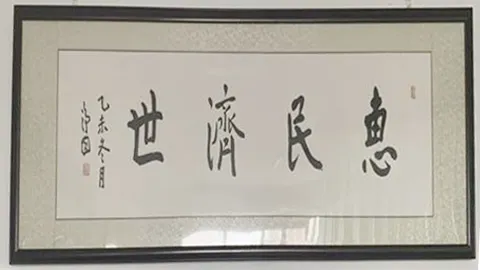 惠民濟世
乙未冬月